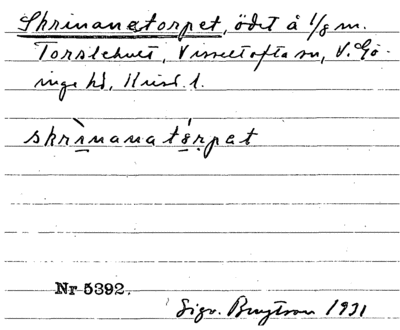 Skrinanetorpet, ödet å 1/8 m.
Torslehult, Visseltofta sn, V. Gö-
inge hd, Krist. l.
skrìnanatórpat
Nr 5392.
Sigv. Bengtson 1931